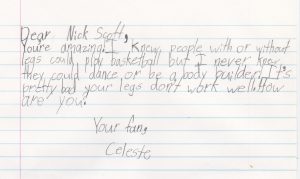 Dear Nick Scott,
You're amazing! I knew people with or without
legs could play basketball but I never knew
they could dance or be a body builder. It's
pretty bad your legs don't work well. How
are you?
Your fan,
Celeste